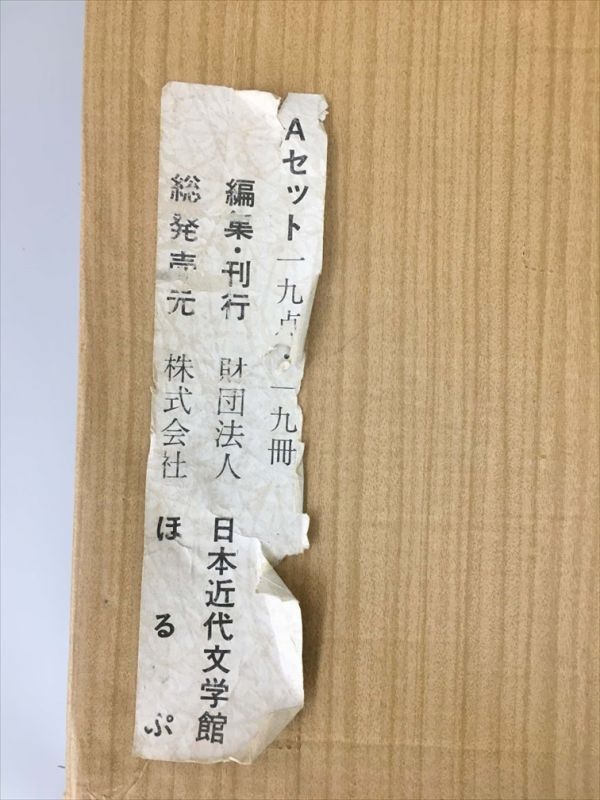 Aセット 一九点・一九冊
編集・刊行 財団法人 日本近代文学館
総発売元 株式会社 ほるぷ